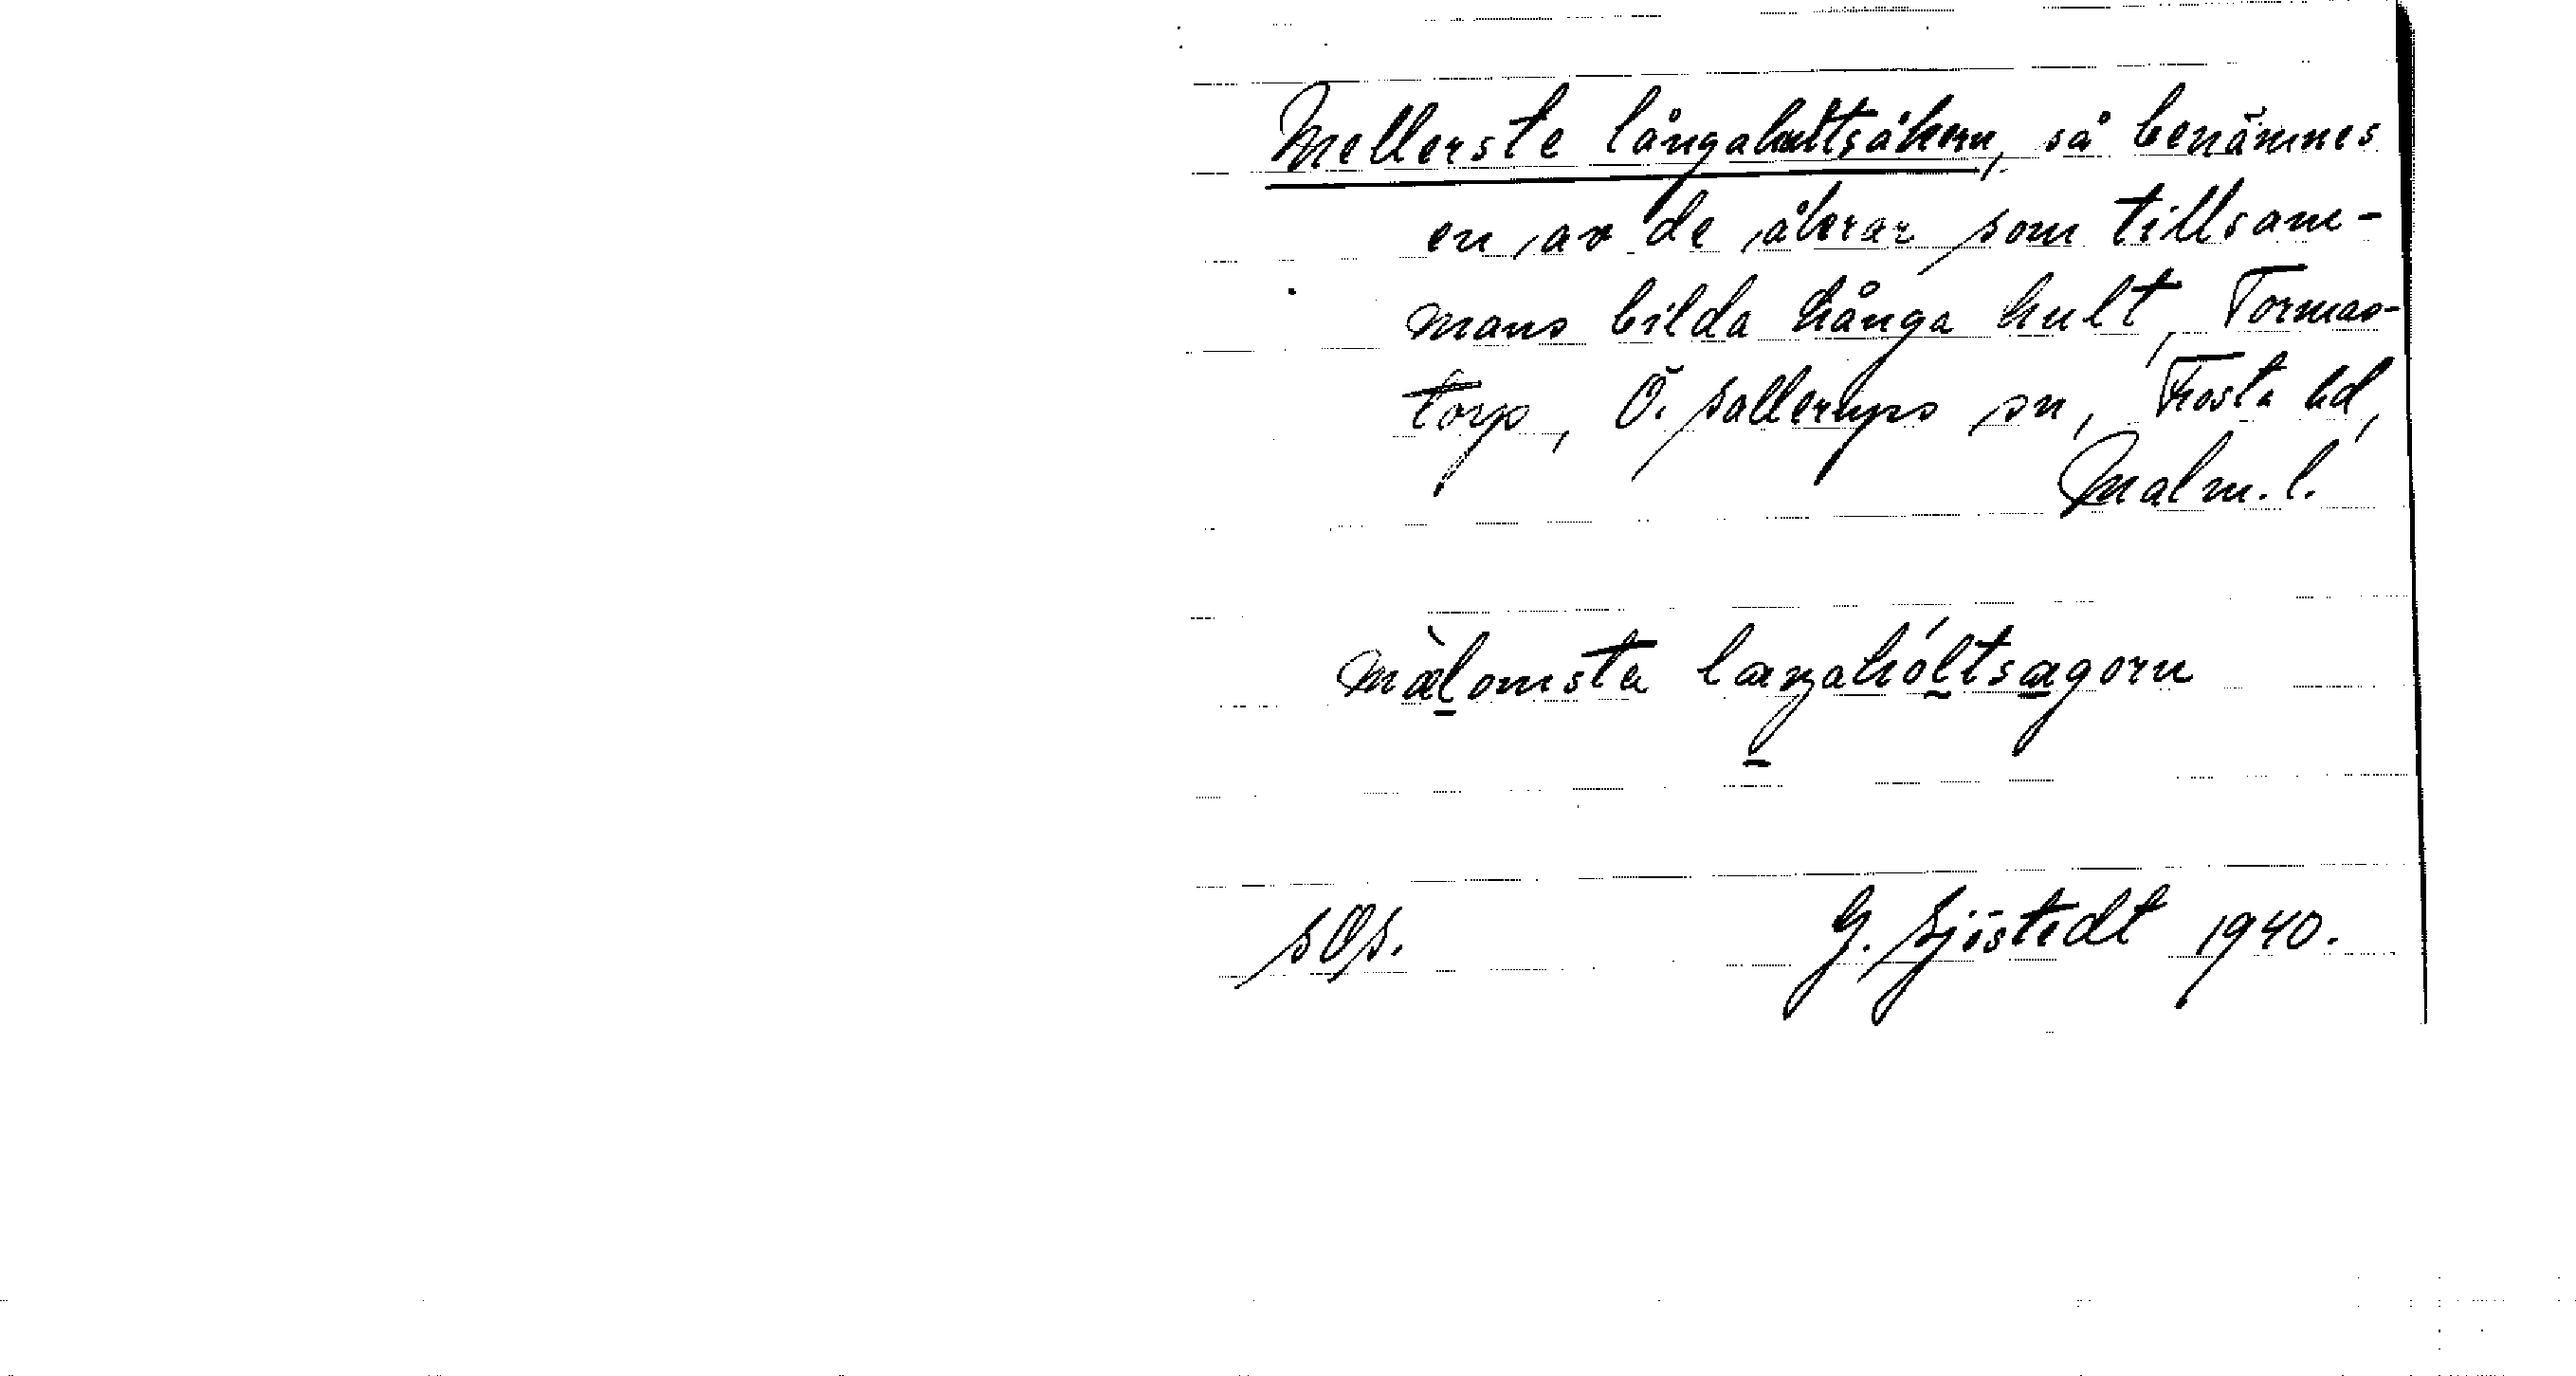 Mellerste långahultsåkern, så benämnes
en av de åkrar som tillsam-
mans bilda hånga hult, Tormas-
torp, Ö. Sallerups sn, Frosta hd,
Malm. l.
mälomsta laŋahóltsagorn
sOs.
G. Sjöstedt 1940.